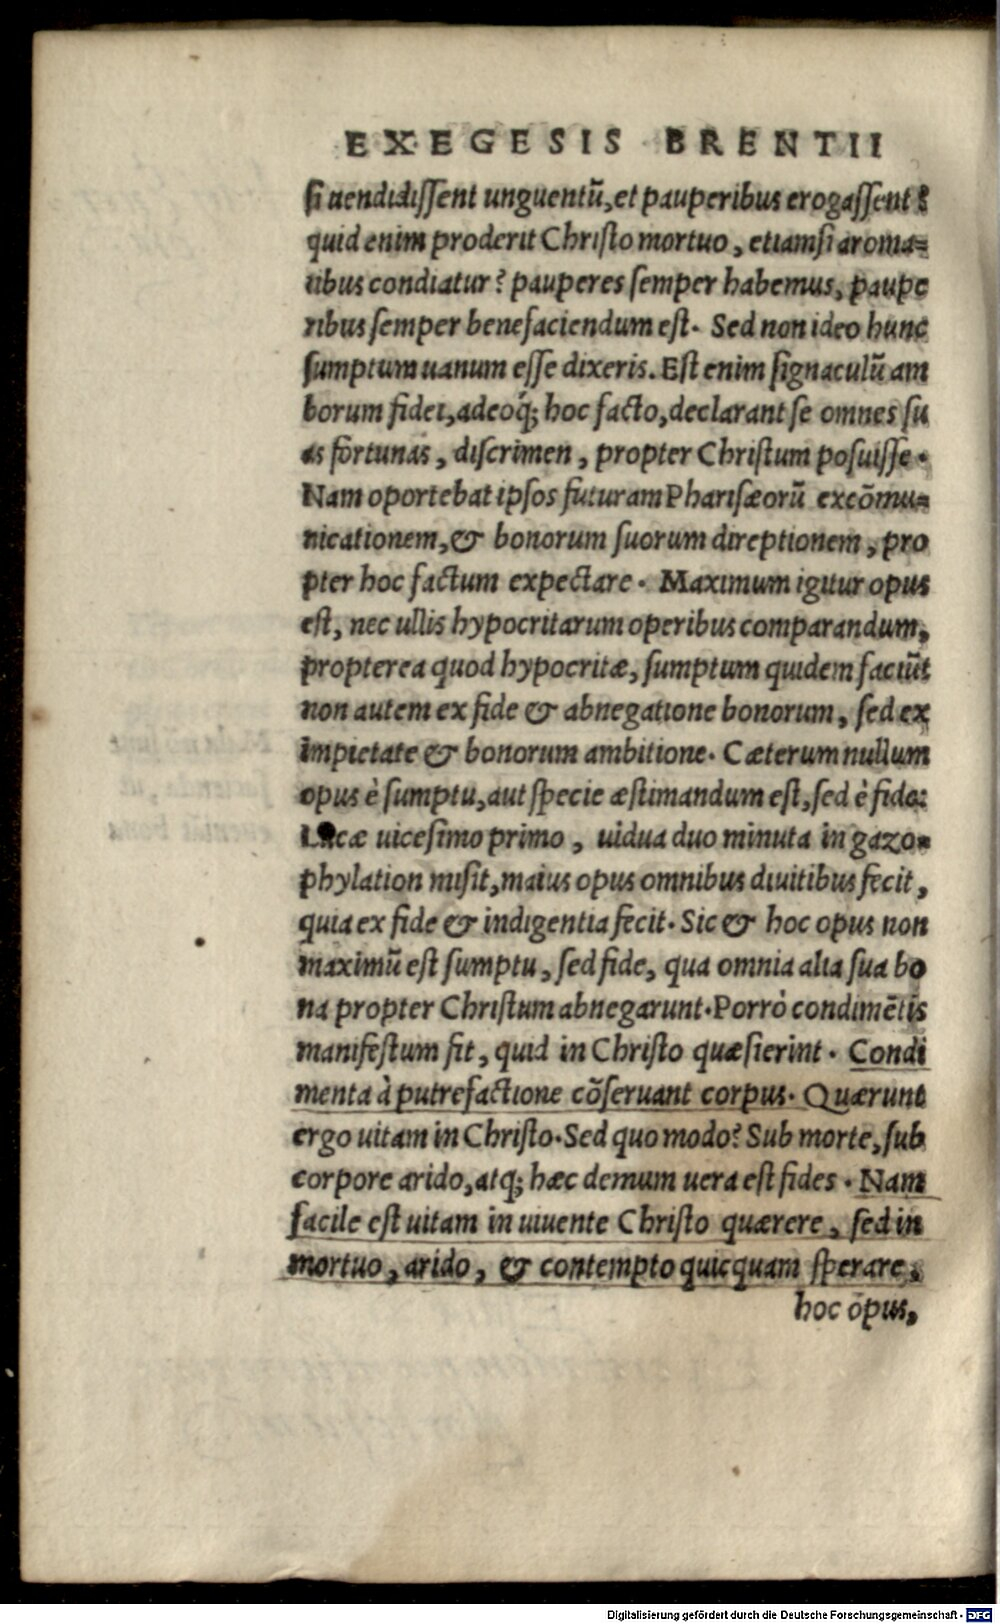 EXEGESIS BRENTII
ſi uendidiſſent unguentũ, et pauperibus erogaſſent?
quid enim proderit Chriſto mortuo, etiamſi aroma=
tibus condiatur? pauperes ſemper habemus, paupe
ribus ſemper benefaciendum eſt. Sed non ideo hunc
ſumptum uanum eſſe dixeris. Eſt enim ſignaculũ am
borum fidei, adeoq́; hoc facto, declarant ſe omnes ſu
as fortunas, diſcrimen, propter Chriſtum poſuiſſe.
Nam oportebat ipſos futuram Phariſæorũ excõmu=
nicationem, & bonorum ſuorum direptionem, pro
pter hoc factum expectare. Maximum igitur opus
eſt, nec ullis hypocritarum operibus comparandum,
propterea quod hypocritæ, ſumptum quidem faciũt
non autem ex fide & abnegatione bonorum, ſed ex
impietate & bonorum ambitione. Cæterum nullum
opus è ſumptu, aut ſpecie æſtimandum eſt, ſed è fide:
Lucæ uiceſimo primo, uidua duo minuta in gazo=
phylation miſit, maius opus omnibus diuitibus fecit,
quia ex fide & indigentia fecit. Sic & hoc opus non
maximũ eſt ſumptu, ſed fide, qua omnia alia ſua bo
na propter Chriſtum abnegarunt. Porrò condimẽtis
manifeſtum fit, quid in Chriſto quæſierint. Condi
menta à putrefactione cõſeruant corpus. Quærunt
ergo uitam in Chriſto. Sed quo modo? Sub morte, ſub
corpore arido, atq; hæc demum uera eſt fides. Nam
facile eſt uitam in uiuente Chriſto quærere, ſed in
mortuo, arido, & contempto quicquam ſperare,
hoc opus,
Digitalisierung gefördert durch die Deutsche Forschungsgemeinschaft - DFG